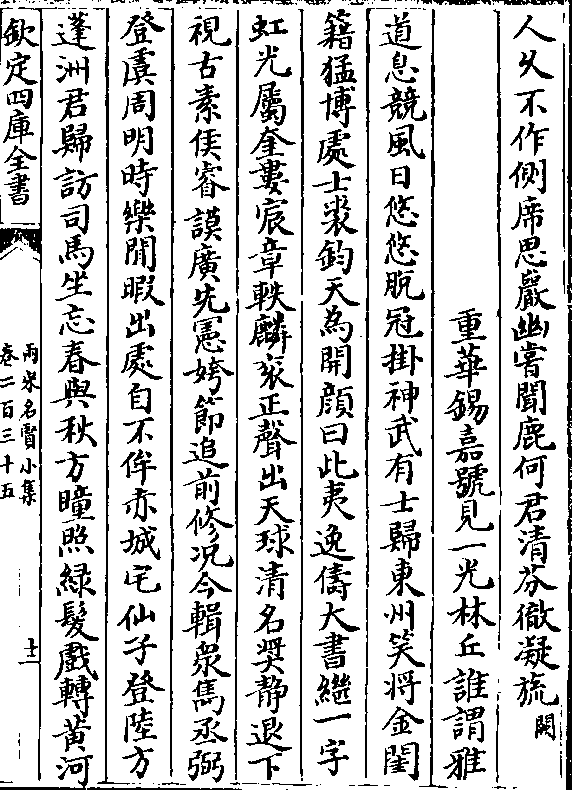 人久不作側席思巖幽嘗聞鹿何君清芬徹凝旒闕
重華錫嘉號見一光林丘誰謂雅
道息競風日悠悠脱冠掛神武有士歸東州笑將金閨
籍猛博處士裘鈞天為開顔曰此夷逸儔大書繼一字
虹光屬奎婁宸章軼麟衮正聲出天球清名奨静退下
視古素侯睿謨廣先憲姱節追前修况今輯衆馬丞弼
登虞周明時樂閒暇出處自不侔赤城宅仙子登陸方
蓬洲君歸訪司馬坐忘春與秋方瞳照緑髮戲轉黄河
欽定四庫全書
兩宋名賢小集
卷二百三十五
十一